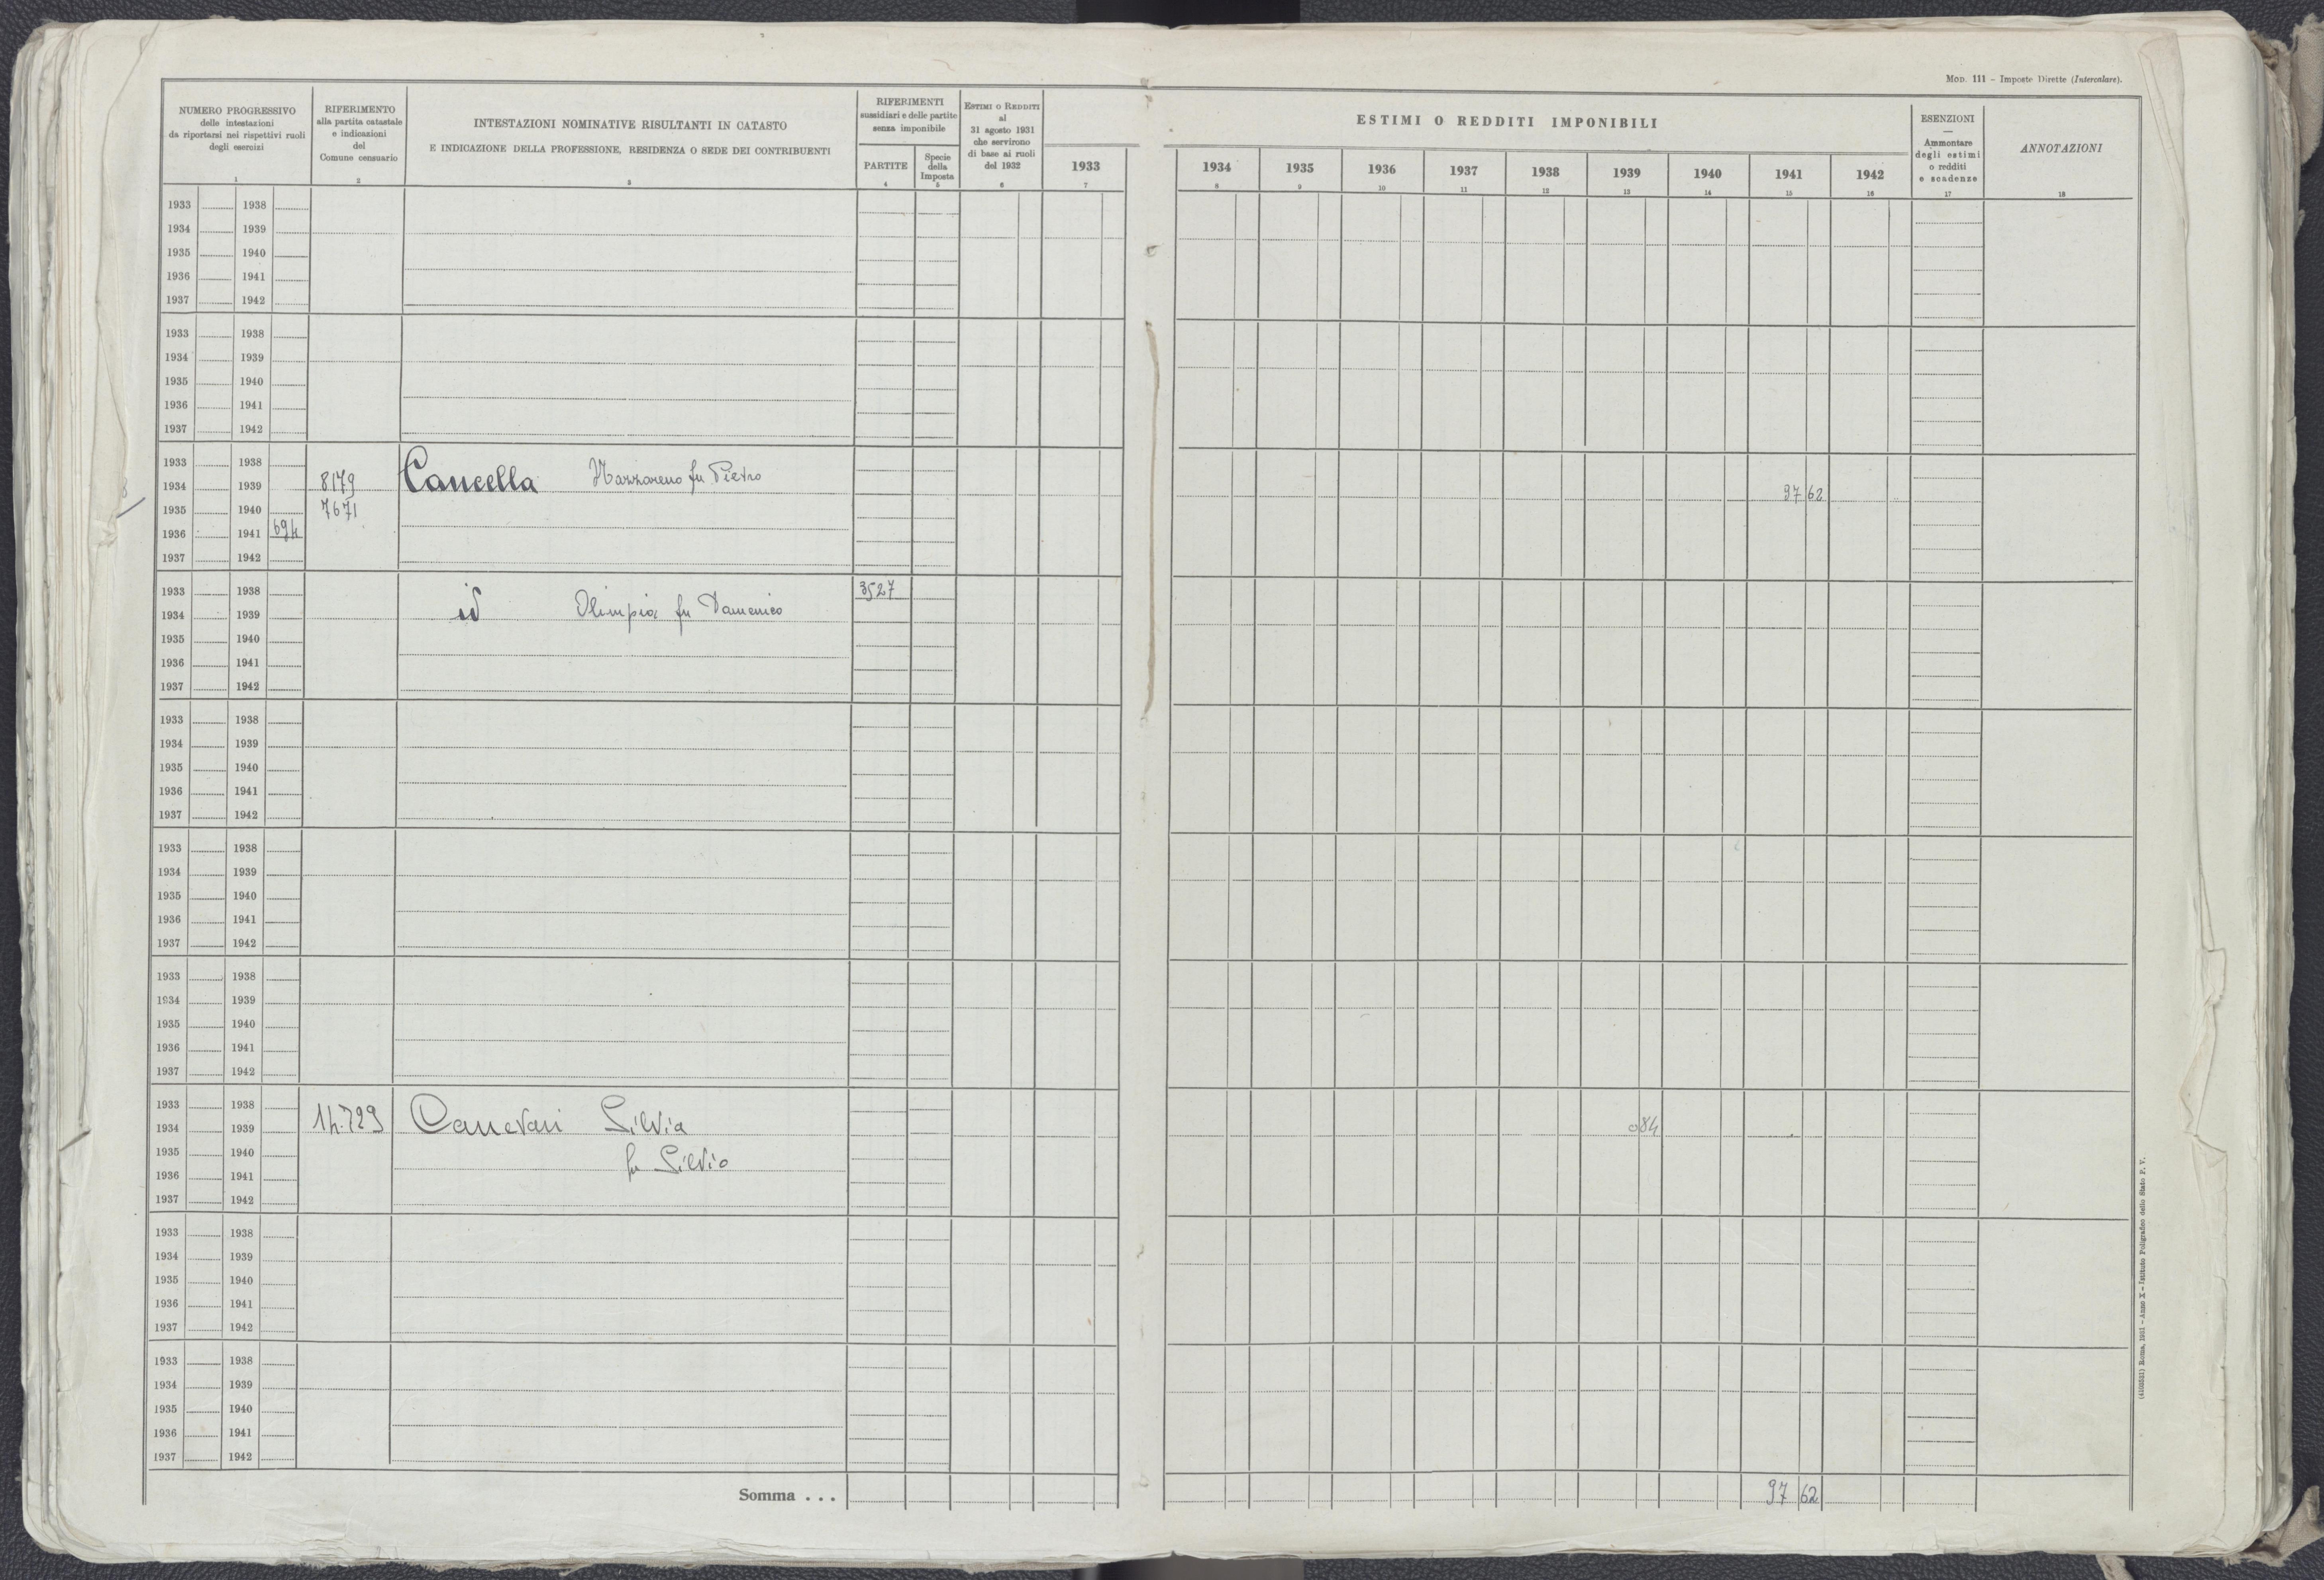 MOD. 111 – Imposte Dirette (Intercalare).
NUMERO PROGRESSIVO
delle intestazioni
da riportarsi nei rispettivi ruoli
degli esercizi
1
RIFERIMENTO
alla partita catastale
e indicazioni
del
Comune censuario
2
INTESTAZIONI NOMINATIVE RISULTANTI IN CATASTO
E INDICAZIONE DELLA PROFESSIONE, RESIDENZA O SEDE DEI CONTRIBUENTI
3
RIFERIMENTI
sussidiari e delle partite
senza imponibile
PARTITE
4
Specie
della
Imposta
5
ESTIMI O REDDITI
al
31 agosto 1931
che servirono
di base ai ruoli
del 1932
6
1933
7
ESTIMI O REDDITI IMPONIBILI
1934 1935 1936 1937 1938 1939 1940 1941 1942
8 9 10 11 12 13 14 15 16
ESENZIONI
—
Ammontare
degli estimi
o redditi
e scadenze
17
ANNOTAZIONI
18
1933 1938
1934 1939
1935 1940
1936 1941
1937 1942
1933 1938
1934 1939
1935 1940
1936 1941
1937 1942
1933 1938
1934 1939 8179 Cancella Nazzareno fu Pietro 97 62
1935 1940 7671
1936 1941 694
1937 1942
1933 1938 3527
1934 1939 id Olimpia fu Domenico
1935 1940
1936 1941
1937 1942
1933 1938
1934 1939
1935 1940
1936 1941
1937 1942
1933 1938
1934 1939
1935 1940
1936 1941
1937 1942
1933 1938
1934 1939
1935 1940
1936 1941
1937 1942
1933 1938
1934 1939 14729 Canevari Silvia 0 84
1935 1940 fu Silvio
1936 1941
1937 1942
1933 1938
1934 1939
1935 1940
1936 1941
1937 1942
1933 1938
1934 1939
1935 1940
1936 1941
1937 1942
Somma . . . 97 62